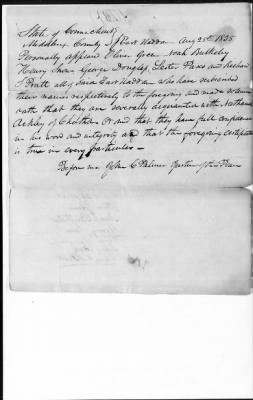 State of Connecticut
Middlesex County } East Haddam Aug 25th 1835
Personally appeared Oliver Noah Bulkeley
Henry George Douglass, Lester and
all of said East Haddam who have subscribed
their names respectively to the foregoing and made solemn
oath that they are severally acquainted with Nathan
Ackley of Chatham and that they have full confidence
in his word and integrity and that the foregoing certificate
is true in every particular —
Before me C Palmer Justice of the Peace